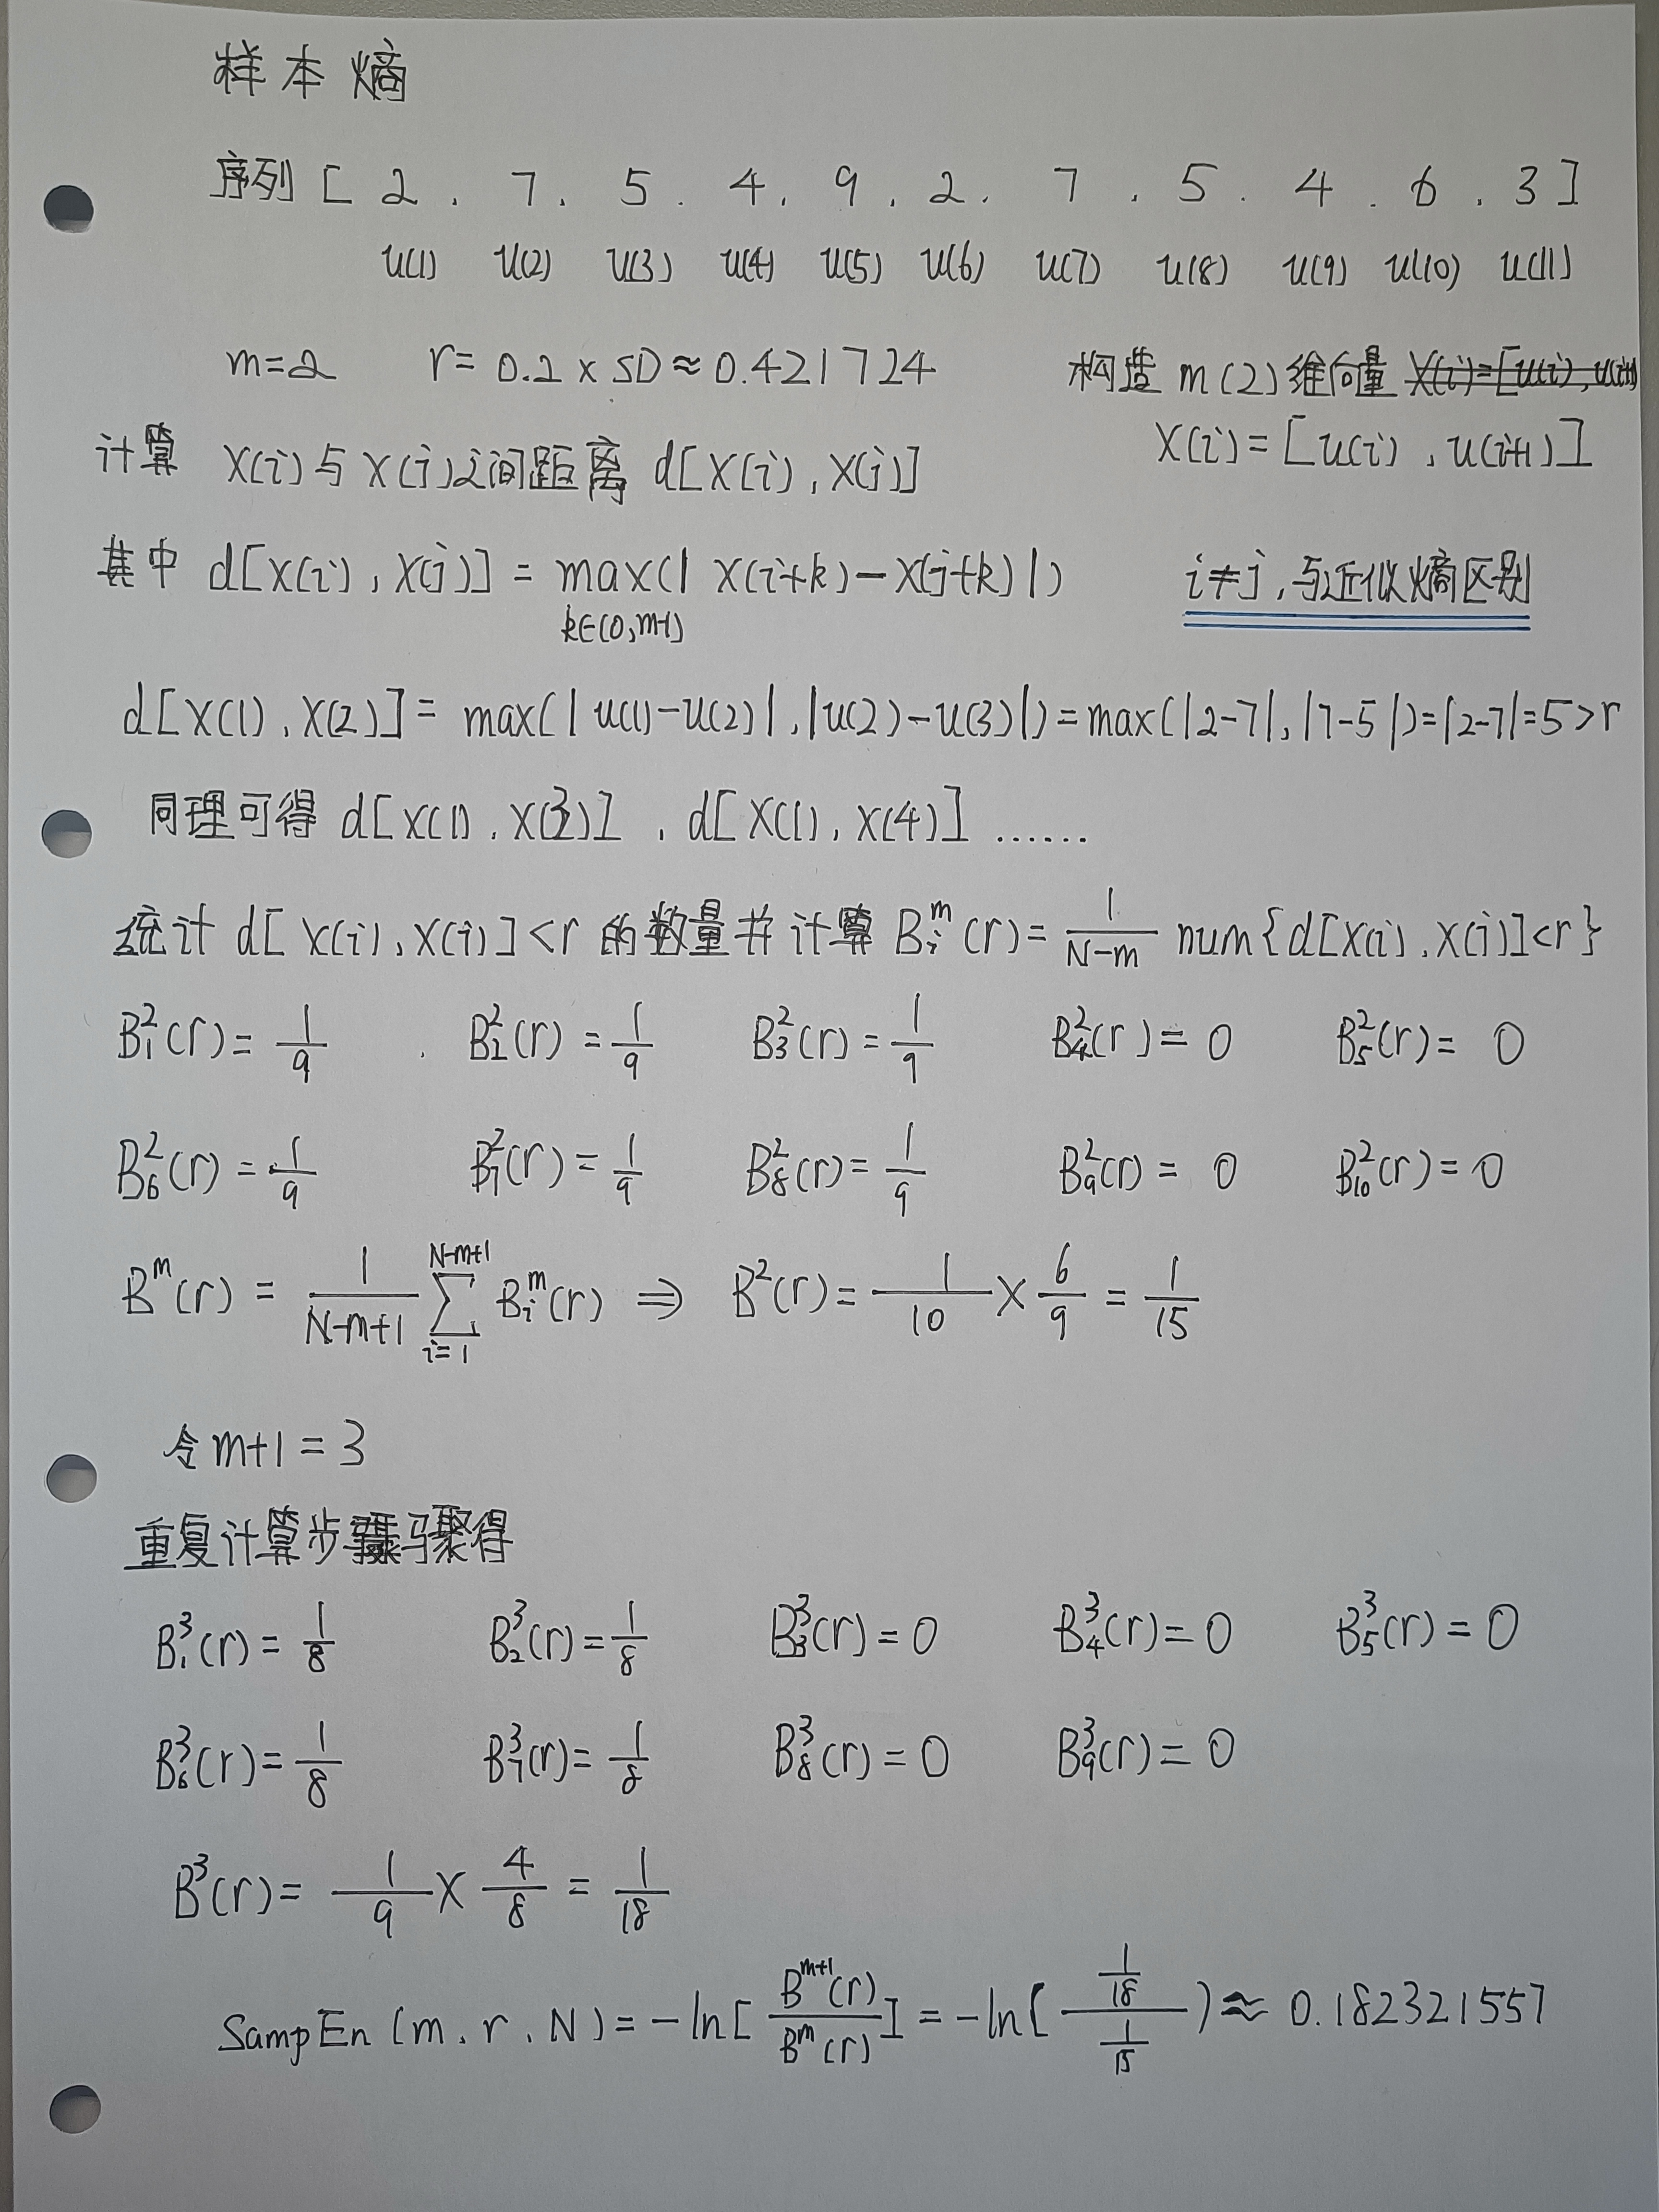 样本熵
序列 [ 2 . 7 . 5 . 4 . 9 . 2 . 7 . 5 . 4 . 6 . 3 ]
u(1) u(2) u(3) u(4) u(5) u(6) u(7) u(8) u(9) u(10) u(11)
m=2 r= 0.2 x SD≈0.421724 构造 m(2)维向量 X(i)=[u(i),u(i+1)
X(i)=[u(i),u(i+1)]
计算 X(i)与X(j)之间距离 d[X(i),X(j)]
其中 d[X(i),X(j)] = max(| X(i+k)-X(j+k)|) i≠j,与近似熵区别
k∈(0,m-1)
d[X(1),X(2)]= max(|u(1)-u(2)|,|u(2)-u(3)|)=max(|2-7|,|7-5|)=|2-7|=5>r
同理可得 d[X(1),X(3)] , d[X(1),X(4)] ……
统计 d[X(i),X(j)]<r 的数量并计算 Bᵢᵐ(r)= 1/(N-m) num{d[X(i),X(j)]<r}
B₁²(r)= 1/9 . B₂²(r)= 1/9 B₃²(r)= 1/9 B₄²(r)= 0 B₅²(r)= 0
B₆²(r)= 1/9 B₇²(r)= 1/9 B₈²(r)= 1/9 B₉²(r)= 0 B₁₀²(r)= 0
Bᵐ(r) = 1/(N-m+1) ∑_{i=1}^{N-m+1} Bᵢᵐ(r) ⇒ B²(r)= 1/10 × 6/9 = 1/15
令m+1=3
重复计算步骤聚得
B₁³(r)= 1/8 B₂³(r)= 1/8 B₃³(r)=0 B₄³(r)=0 B₅³(r)=0
B₆³(r)= 1/8 B₇³(r)= 1/8 B₈³(r)=0 B₉³(r)=0
B³(r)= 1/9 × 4/8 = 1/18
SampEn(m.r.N)=-ln[Bᵐ⁺¹(r)/Bᵐ(r)]=-ln((1/18)/(1/15))≈0.182321557